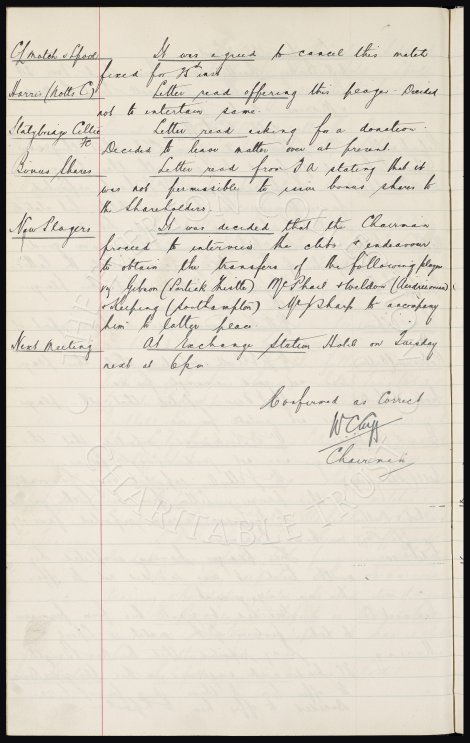 CL match v Lpool It was agreed to cancel this match
fixed for 25th inst
Harris (Notts C) Letter read offering this player. Decided
not to entertain same.
Stalybridge Celtic Letter read asking for a donation.
FC Decided to leave matter over at present.
Bonus Shares Letter read from F A stating that it
was not permissible to issue bonus shares to
the Shareholders.
New Players It was decided that the Chairman
proceed to interview the clubs & endeavour
to obtain the transfers of the following players
viz Gibson (Partick Thistle) McPhail & Weldon (Airdrieonians)
& Keeping (Southampton) Mr J Sharp to accompany
him to latter place
Next Meeting At Exchange Station Hotel on Tuesday
next at 6 pm
Confirmed as Correct
W.C. Cuff
Chairman
CHARITABLE TRUST